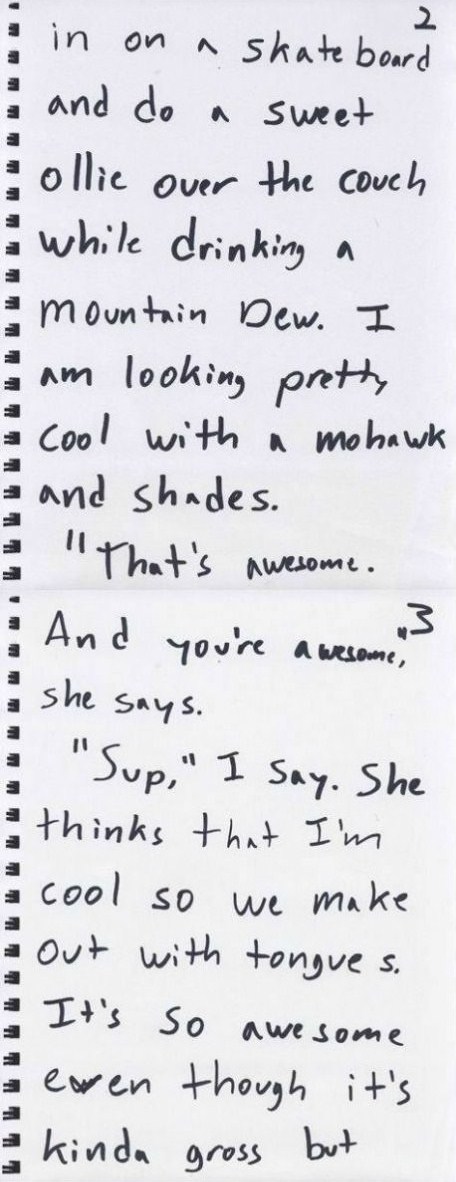 2
in on a skate board
and do a sweet
ollie over the couch
while drinking a
mountain Dew. I
am looking pretty
cool with a mohawk
and shades.
"That's awesome.
3
And you're awesome,"
she says.
"Sup," I say. She
thinks that I'm
cool so we make
out with tongues.
It's so awesome
even though it's
kinda gross but